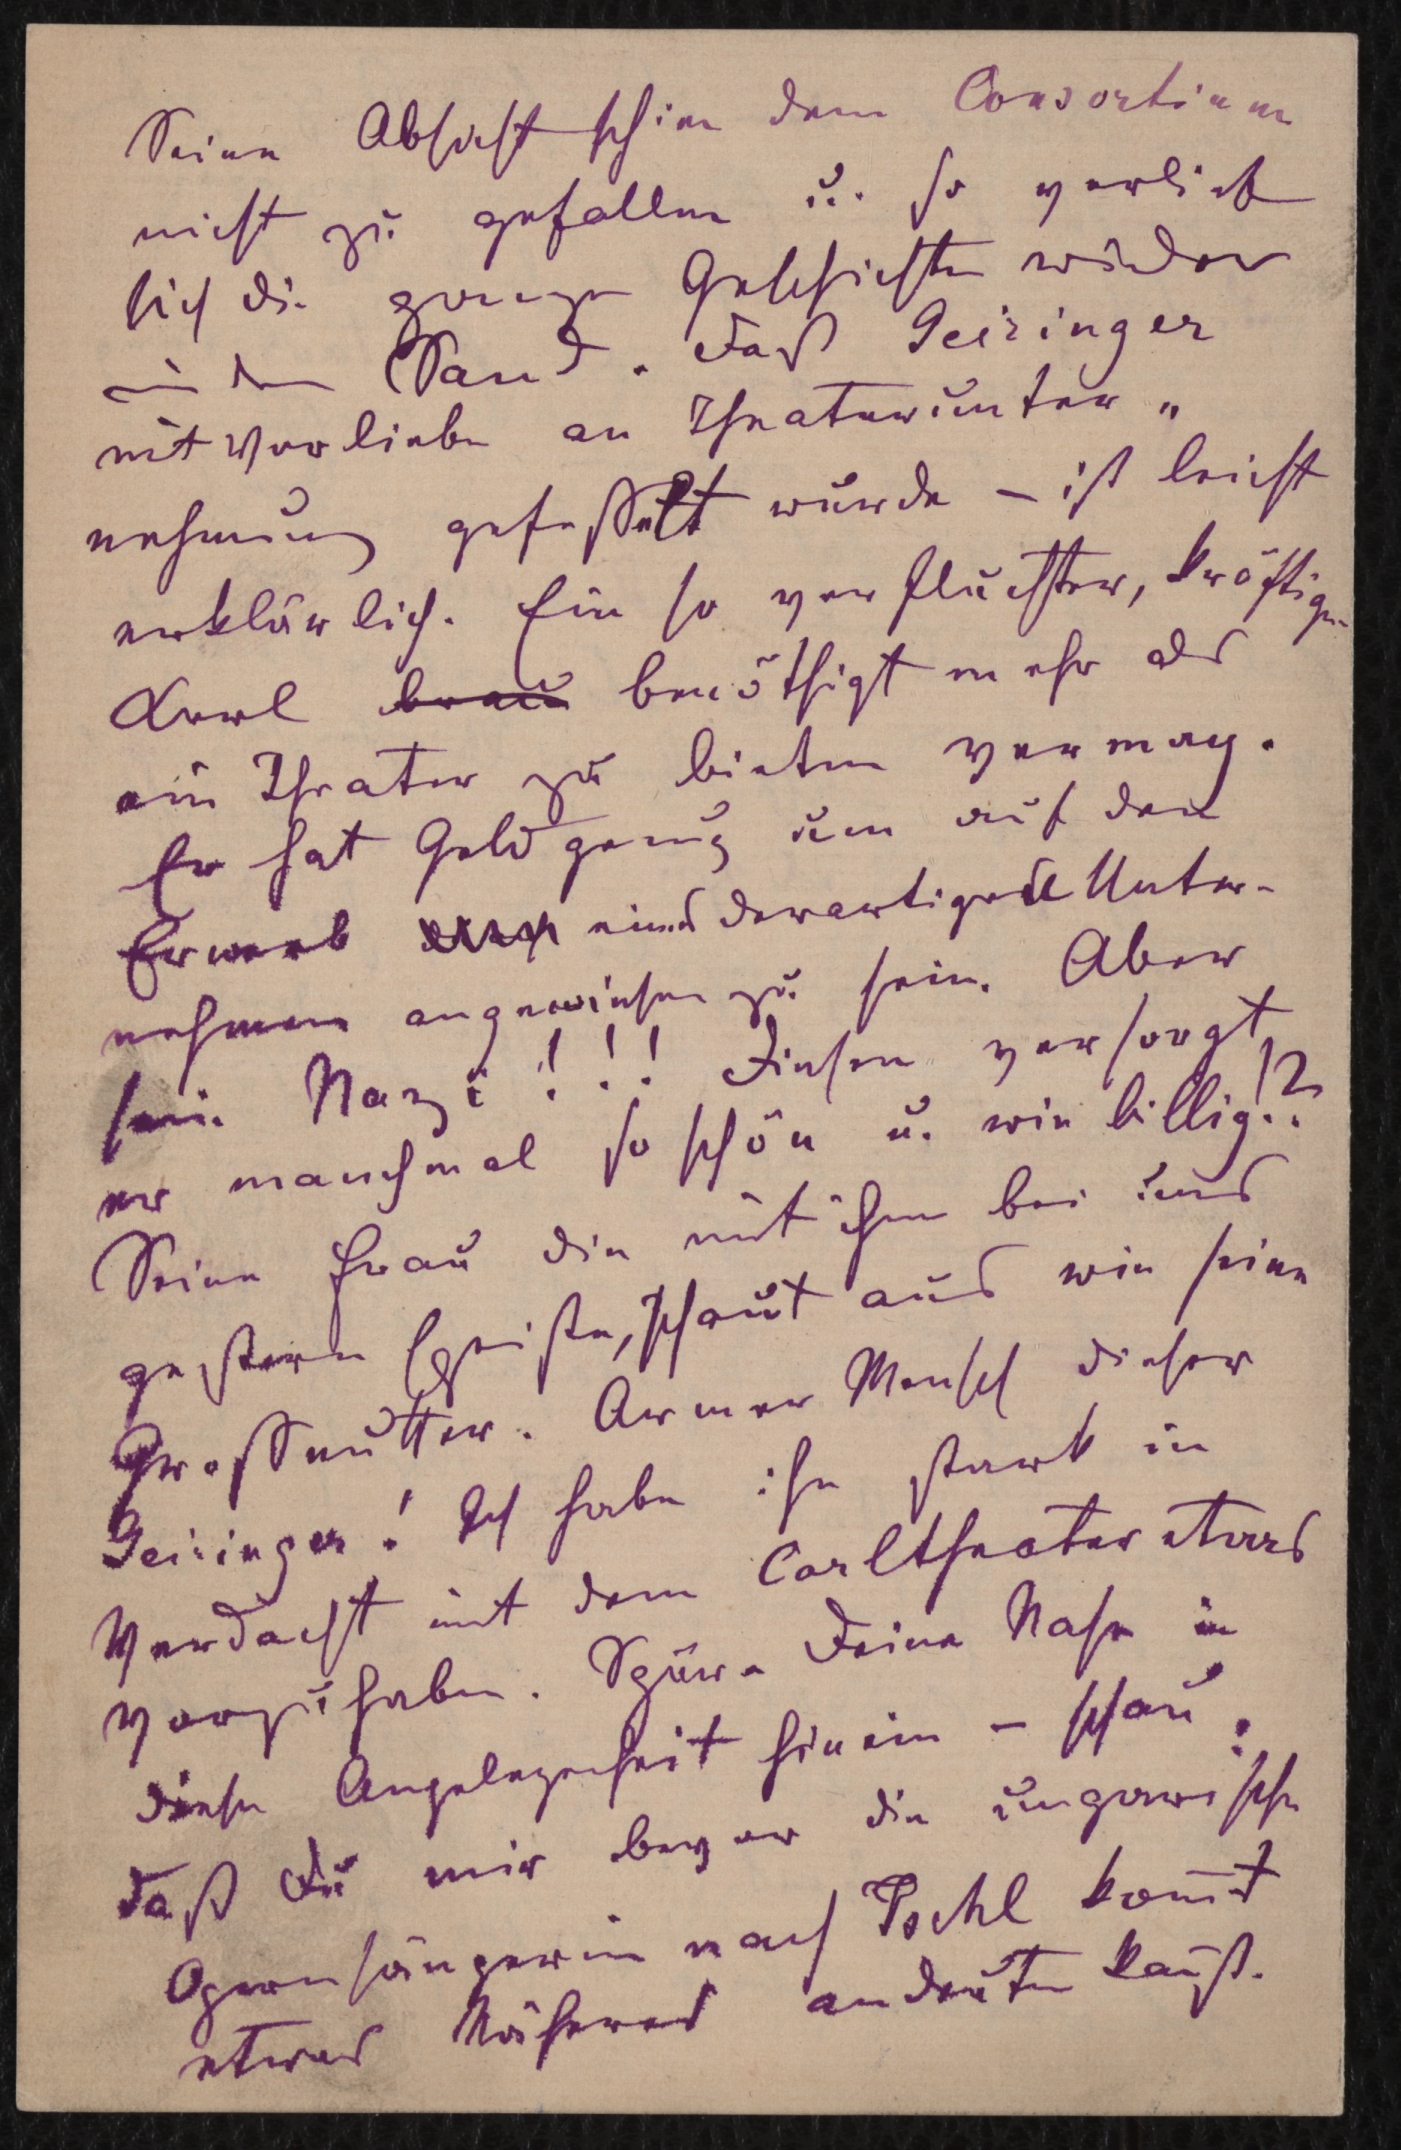 Seine Absicht schien dem Consortium
nicht zu gefallen u. so verlief
sich die ganze Geschichte wieder
in den Sand. Daß Geiringer
mit Vorliebe an Theaterunter„
nehmung gefesselt wurde – ist leicht
erklärlich. Ein so verfluchter, kräftiger
Kerl brau benöthigt mehr als
ein Theater zu bieten vermag.
Er hat Geld genug um auf den
Erwerb eines derartigen Unter-
nehmen angewiesen zu sein. Aber
sein Nazi!!! Diesen versorgt
er manchmal so schön u. wie billig!?
Seine Frau die mit ihm bei uns
gestern speiste, schaut aus wie seine
Großmutter. Armer Mensch dieser
Geiringer! Ich habe ihn stark in
Verdacht mit dem Carltheater etwas
vorzuhaben. Spüre Deine Nase in
diese Angelegenheit hinein – schau,
daß Du mir bevor die ungarische
Opernsängerin nach Ischl kommt
etwas Näheres andeuten kannst.